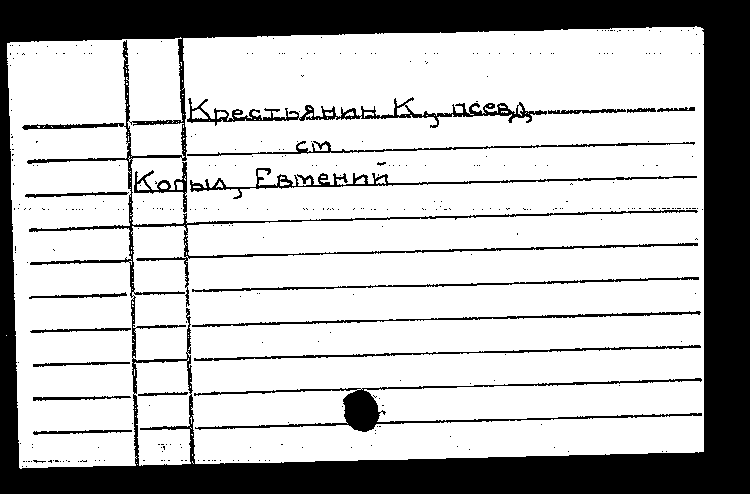 Крестьянин К., псевд.
см.
Копыл, Евгений